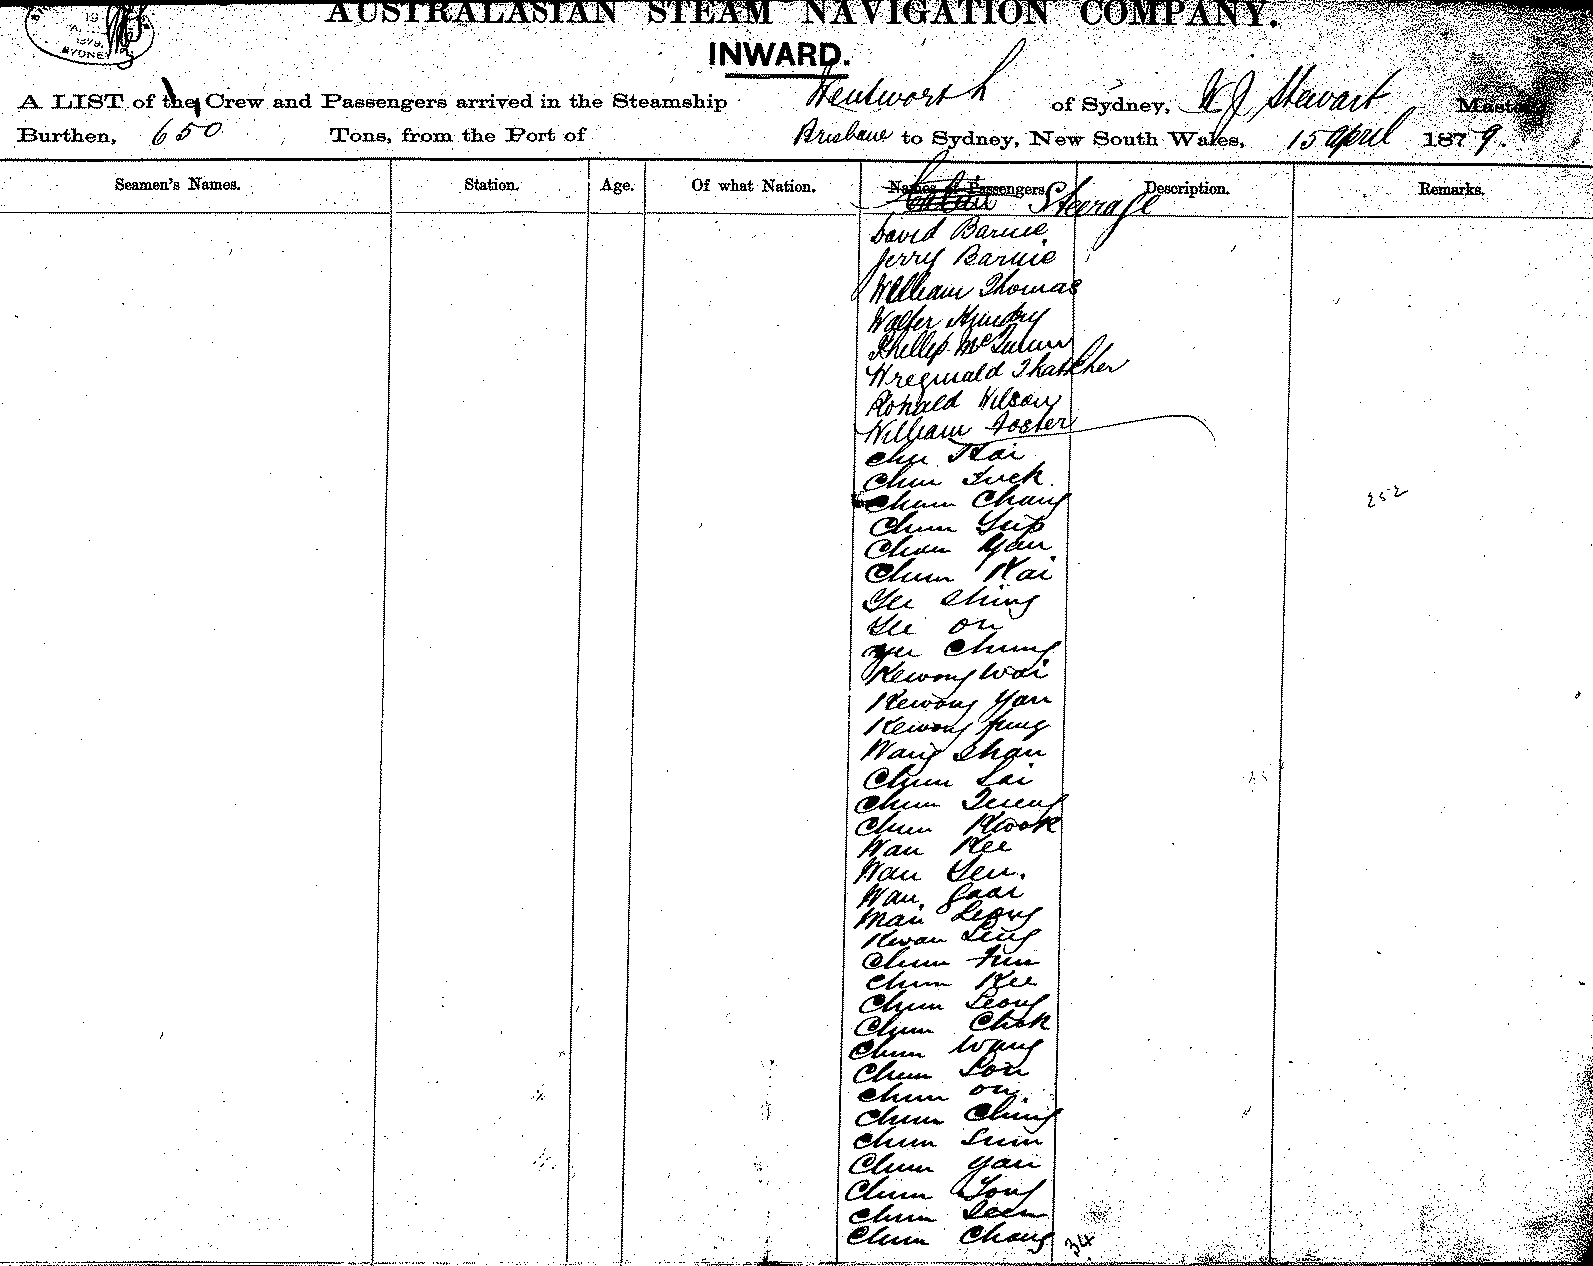 AUSTRALASIAN STEAM NAVIGATION COMPANY.
SYDNEY
INWARD.
A LIST of the Crew and Passengers arrived in the Steamship Wentworth of Sydney, W J Stewart Master
Burthen, 650 Tons, from the Port of Brisbane to Sydney, New South Wales, 15 April 1879.
Seamen's Names. Station. Age. Of what Nation. Names of Passengers Description. Remarks.
Cabin Steerage
David Barnie
Jerry Barnie
William Thomas
Walter
Phillip
Wreginald Thatcher
Ronald Wilson
William Foster
Chu Kai
Chun Tuck
Chum Chang
252
Chum Yup
Chan Yan
Chum Kai
Yee Shing
Yee On
Yee Chung
Kewong Wai
Kewong Yan
Kewong Fung
Wang Shan
Chum Lai
Chum
Chum Kwok
Wan Kee
Wan Yen.
Wan
Man Leong
Kwan Ling
Chum
Chum Kee
Chum Leong
Chum Chok
Chum Wang
Chum Lon
Chum On
Chum Ching
Chum Sum
Chum Yan
Chum Tong
Chum Seen
Chum Chang
34